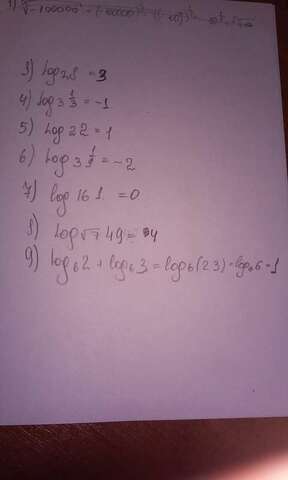 3) log₂8 = 3
4) log3 1/3 = -1
5) log 22 = 1
6) log 3 1/9 = -2
7) log 16 1 = 0
8) log √7 49 = 4
9) log₆2 + log₆3 = log₆(2·3) = log₆6 = 1